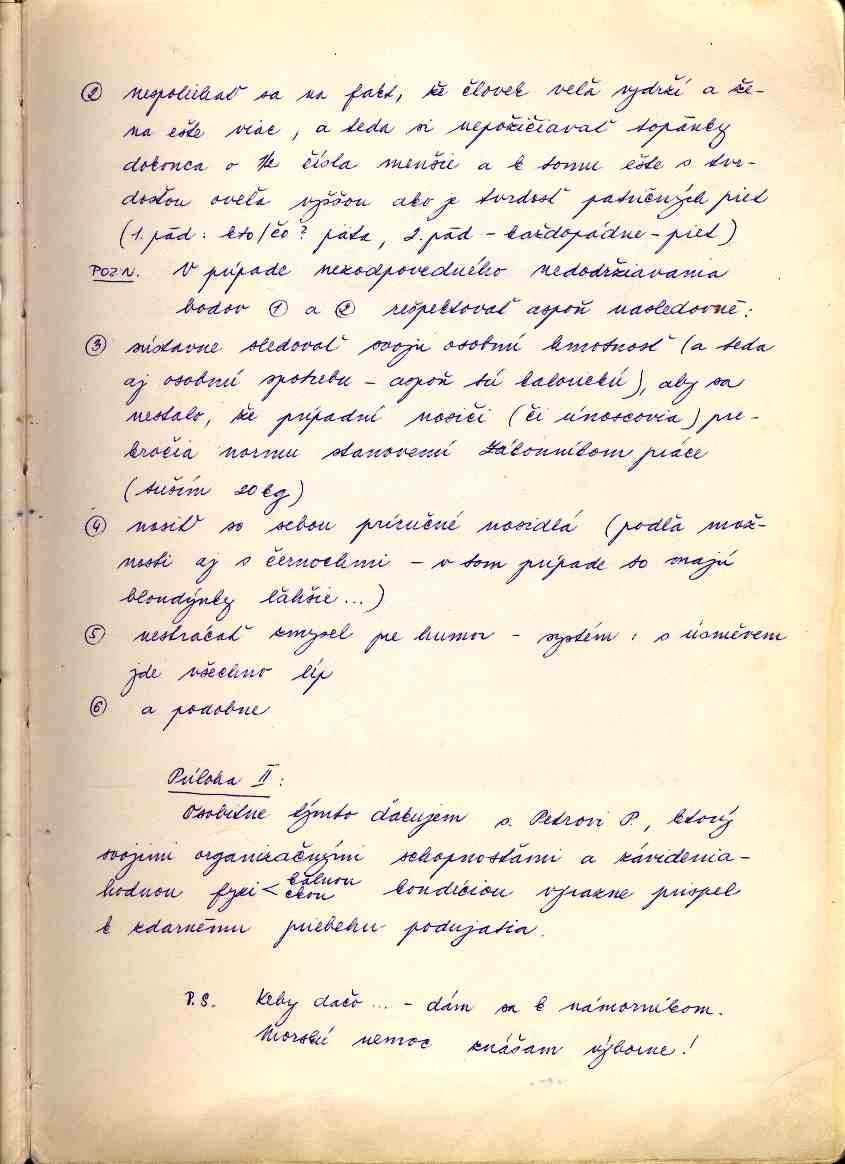 ② nespoliehať sa na fakt, že človek veľa vydrží a že-
na ešte viac, a teda si nepožičiavať topánky
dokonca o čísla menšie a k tomu ešte s tvr-
dosťou oveľa vyššou ako je tvrdosť patričných piet
(1. pád: kto/čo? päta, 2. pád - každopádne - piet)
POZN. V prípade nezodpovedného nedodržiavania
bodov ① a ② rešpektovať aspoň nasledovné:
③ sústavne sledovať svoju osobnú hmotnosť (a teda
aj osobnú spotrebu - aspoň tú kalorickú), aby sa
nestalo, že prípadní nosiči (či únoscovia) pre-
kročia normu stanovenú Zákonníkom práce
(tuším 20 kg)
④ nosiť so sebou príručné nosidlá (podľa mož-
nosti aj s černochmi - v tom prípade to majú
blondýnky ľahšie...)
⑤ nestrácať zmysel pre humor - systém: s úsměvem
jde všechno líp
⑥ a podobne
Príloha II:
Osobitne týmto ďakujem s. Petrovi P., ktorý
svojimi organizačnými schopnosťami a závidenia-
hodnou fyzi < kálnou
ckou kondíciou výrazne prispel
k zdarnému priebehu podujatia.
P.S. Keby dačo... - dám sa k námorníkom.
Morskú nemoc znášam výborne!